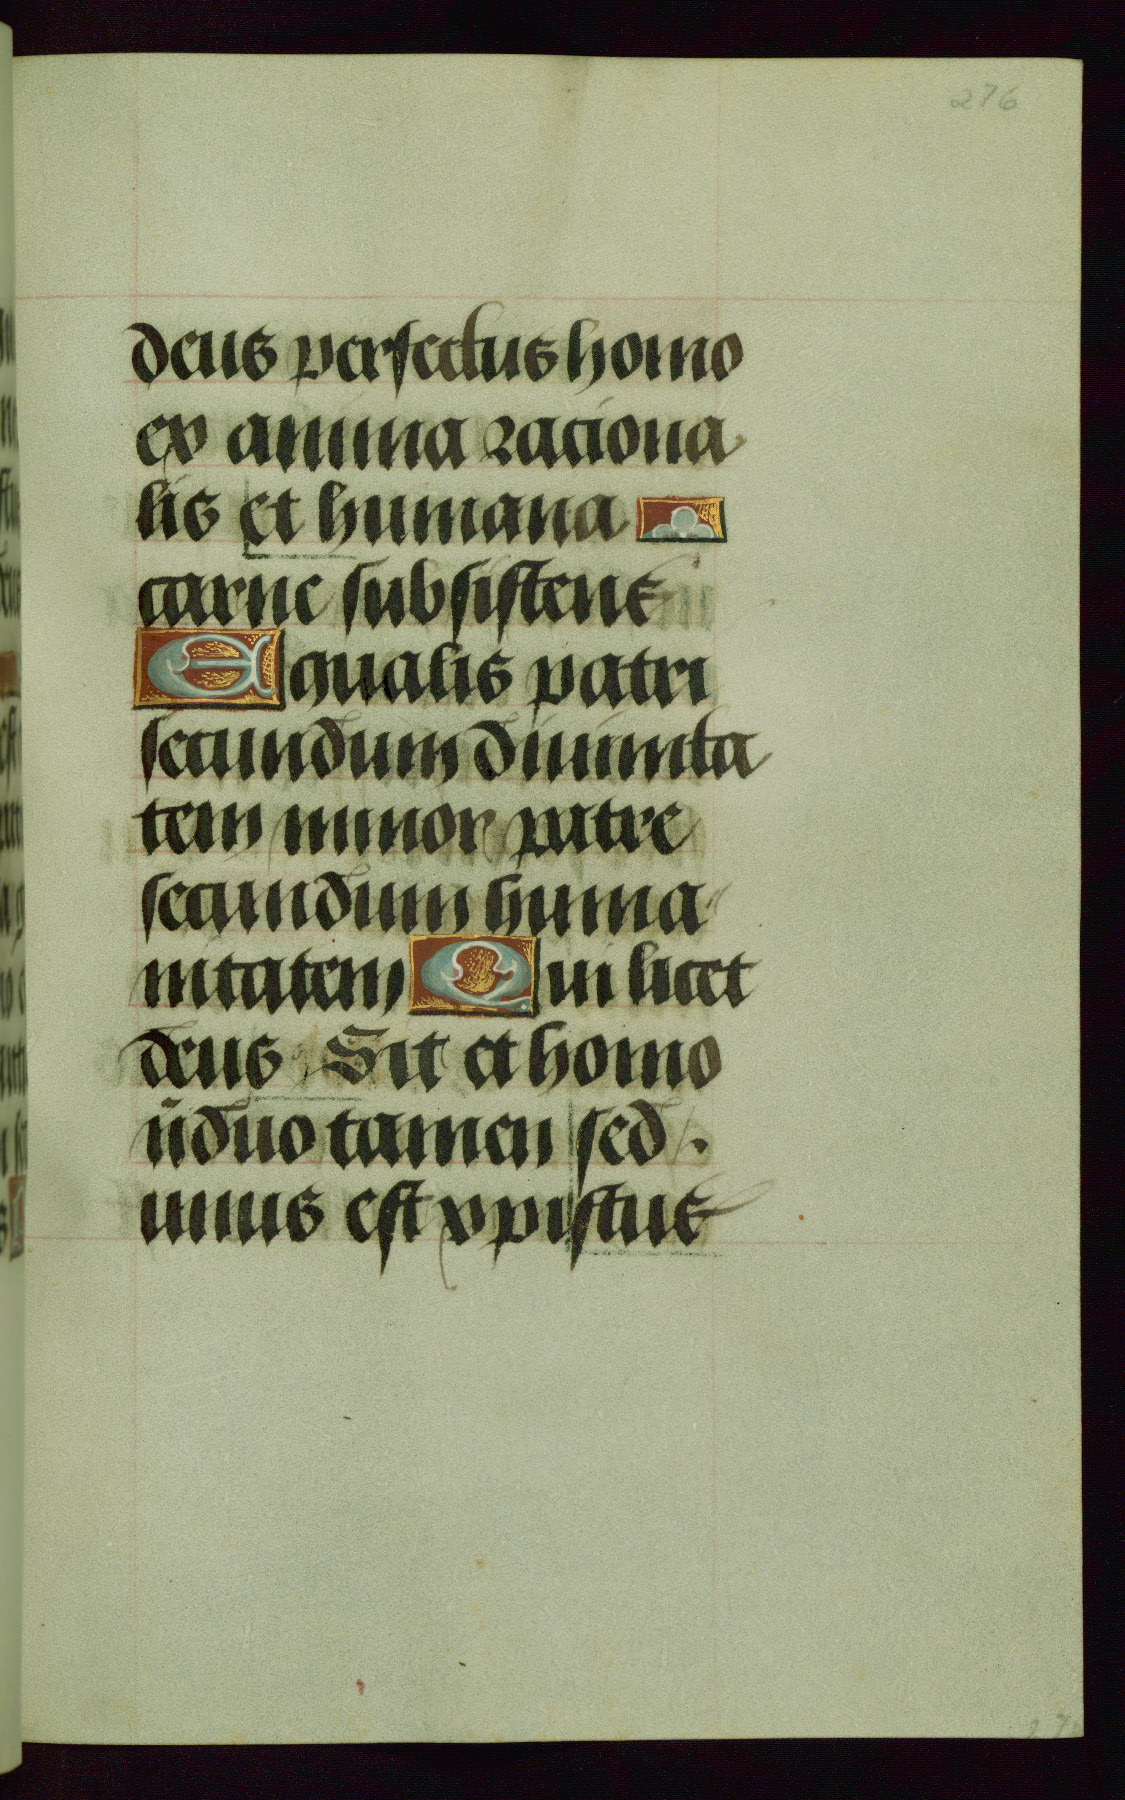 276
deus perfectus homo
ex anima raciona
lis et humana
carne subsistens
Equalis patri
secundum diuinita
tem minor patre
secundum huma
nitatem Qui licet
deus Sit et homo
n̄ duo tamen sed .
unus est xpistus